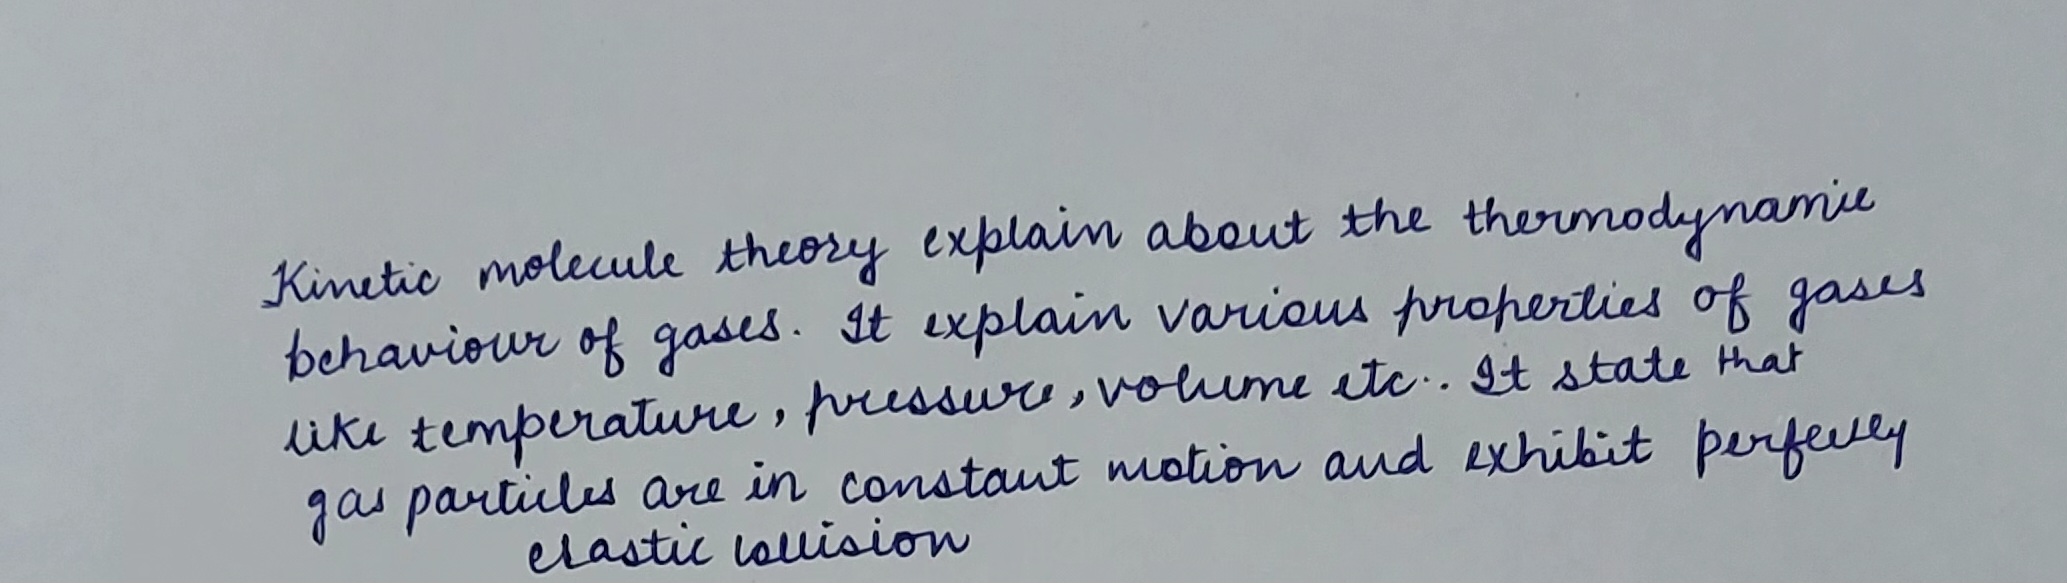 Kinetic molecule theory explain about the thermodynamic
behaviour of gases. It explain various properties of gases
like temperature, pressure, volume etc.. It state that
gas particles are in constant motion and exhibit perfectly
elastic collision